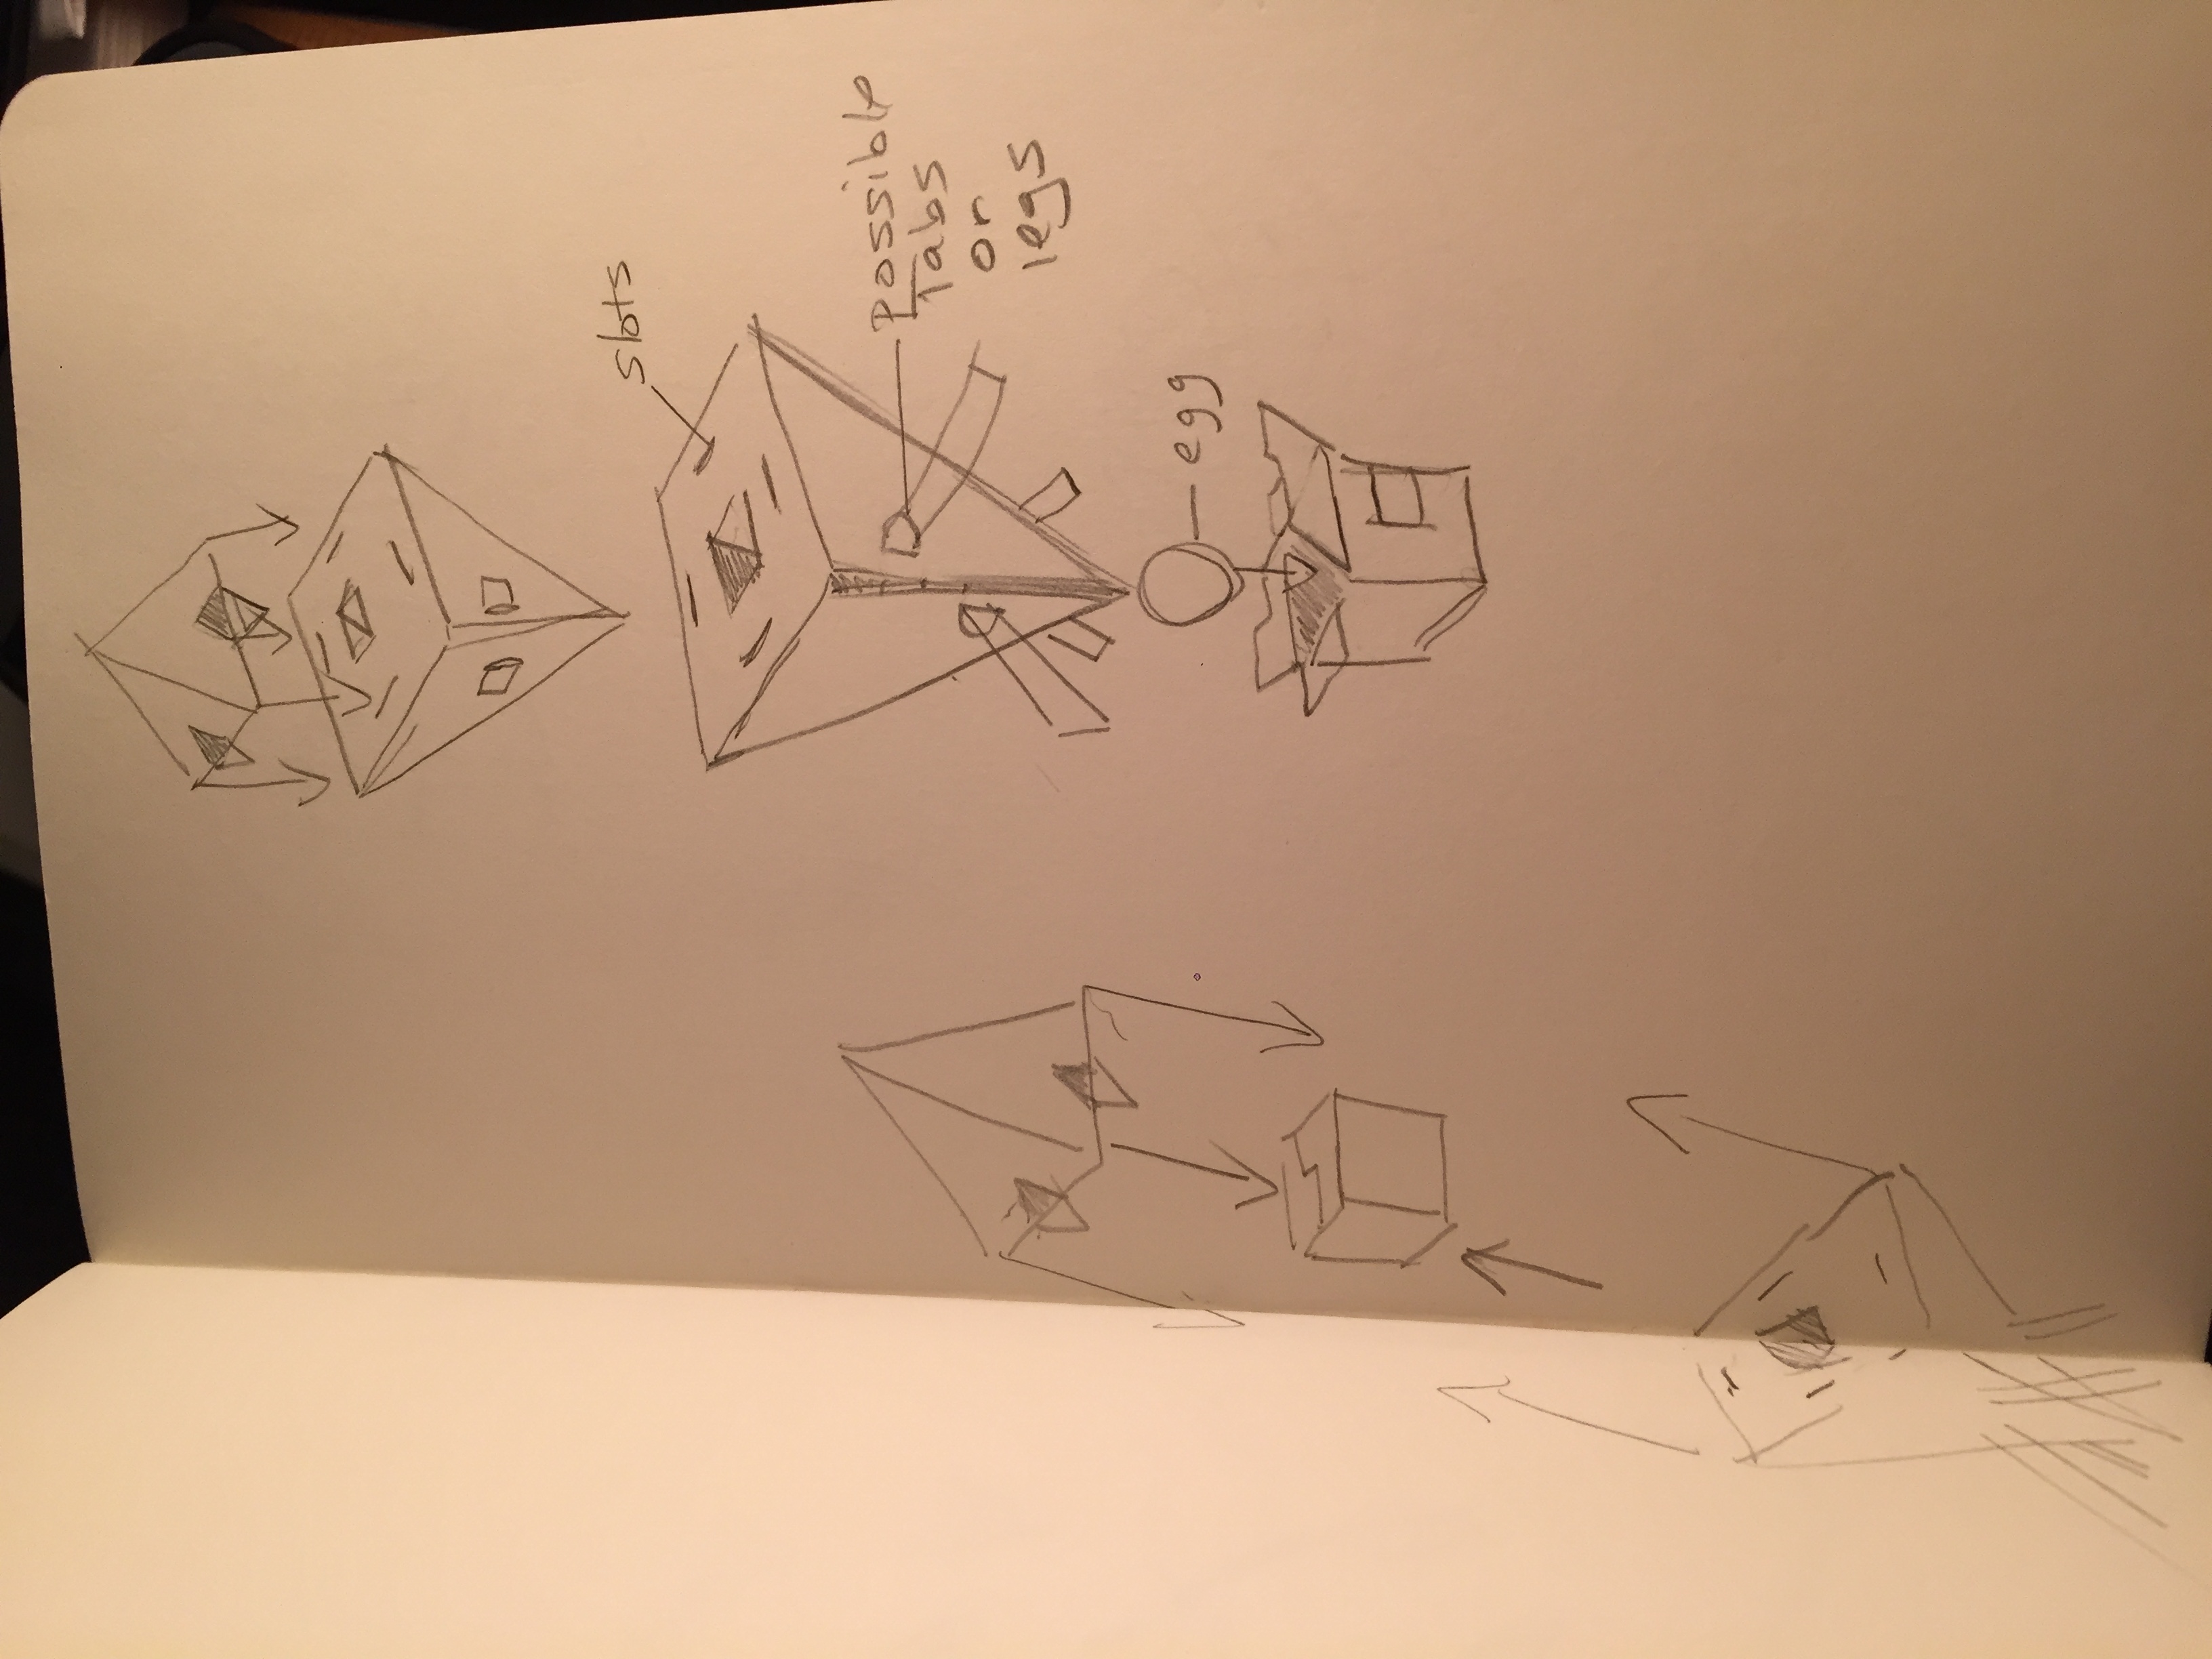 slots
possible
Tabs
or
legs
egg